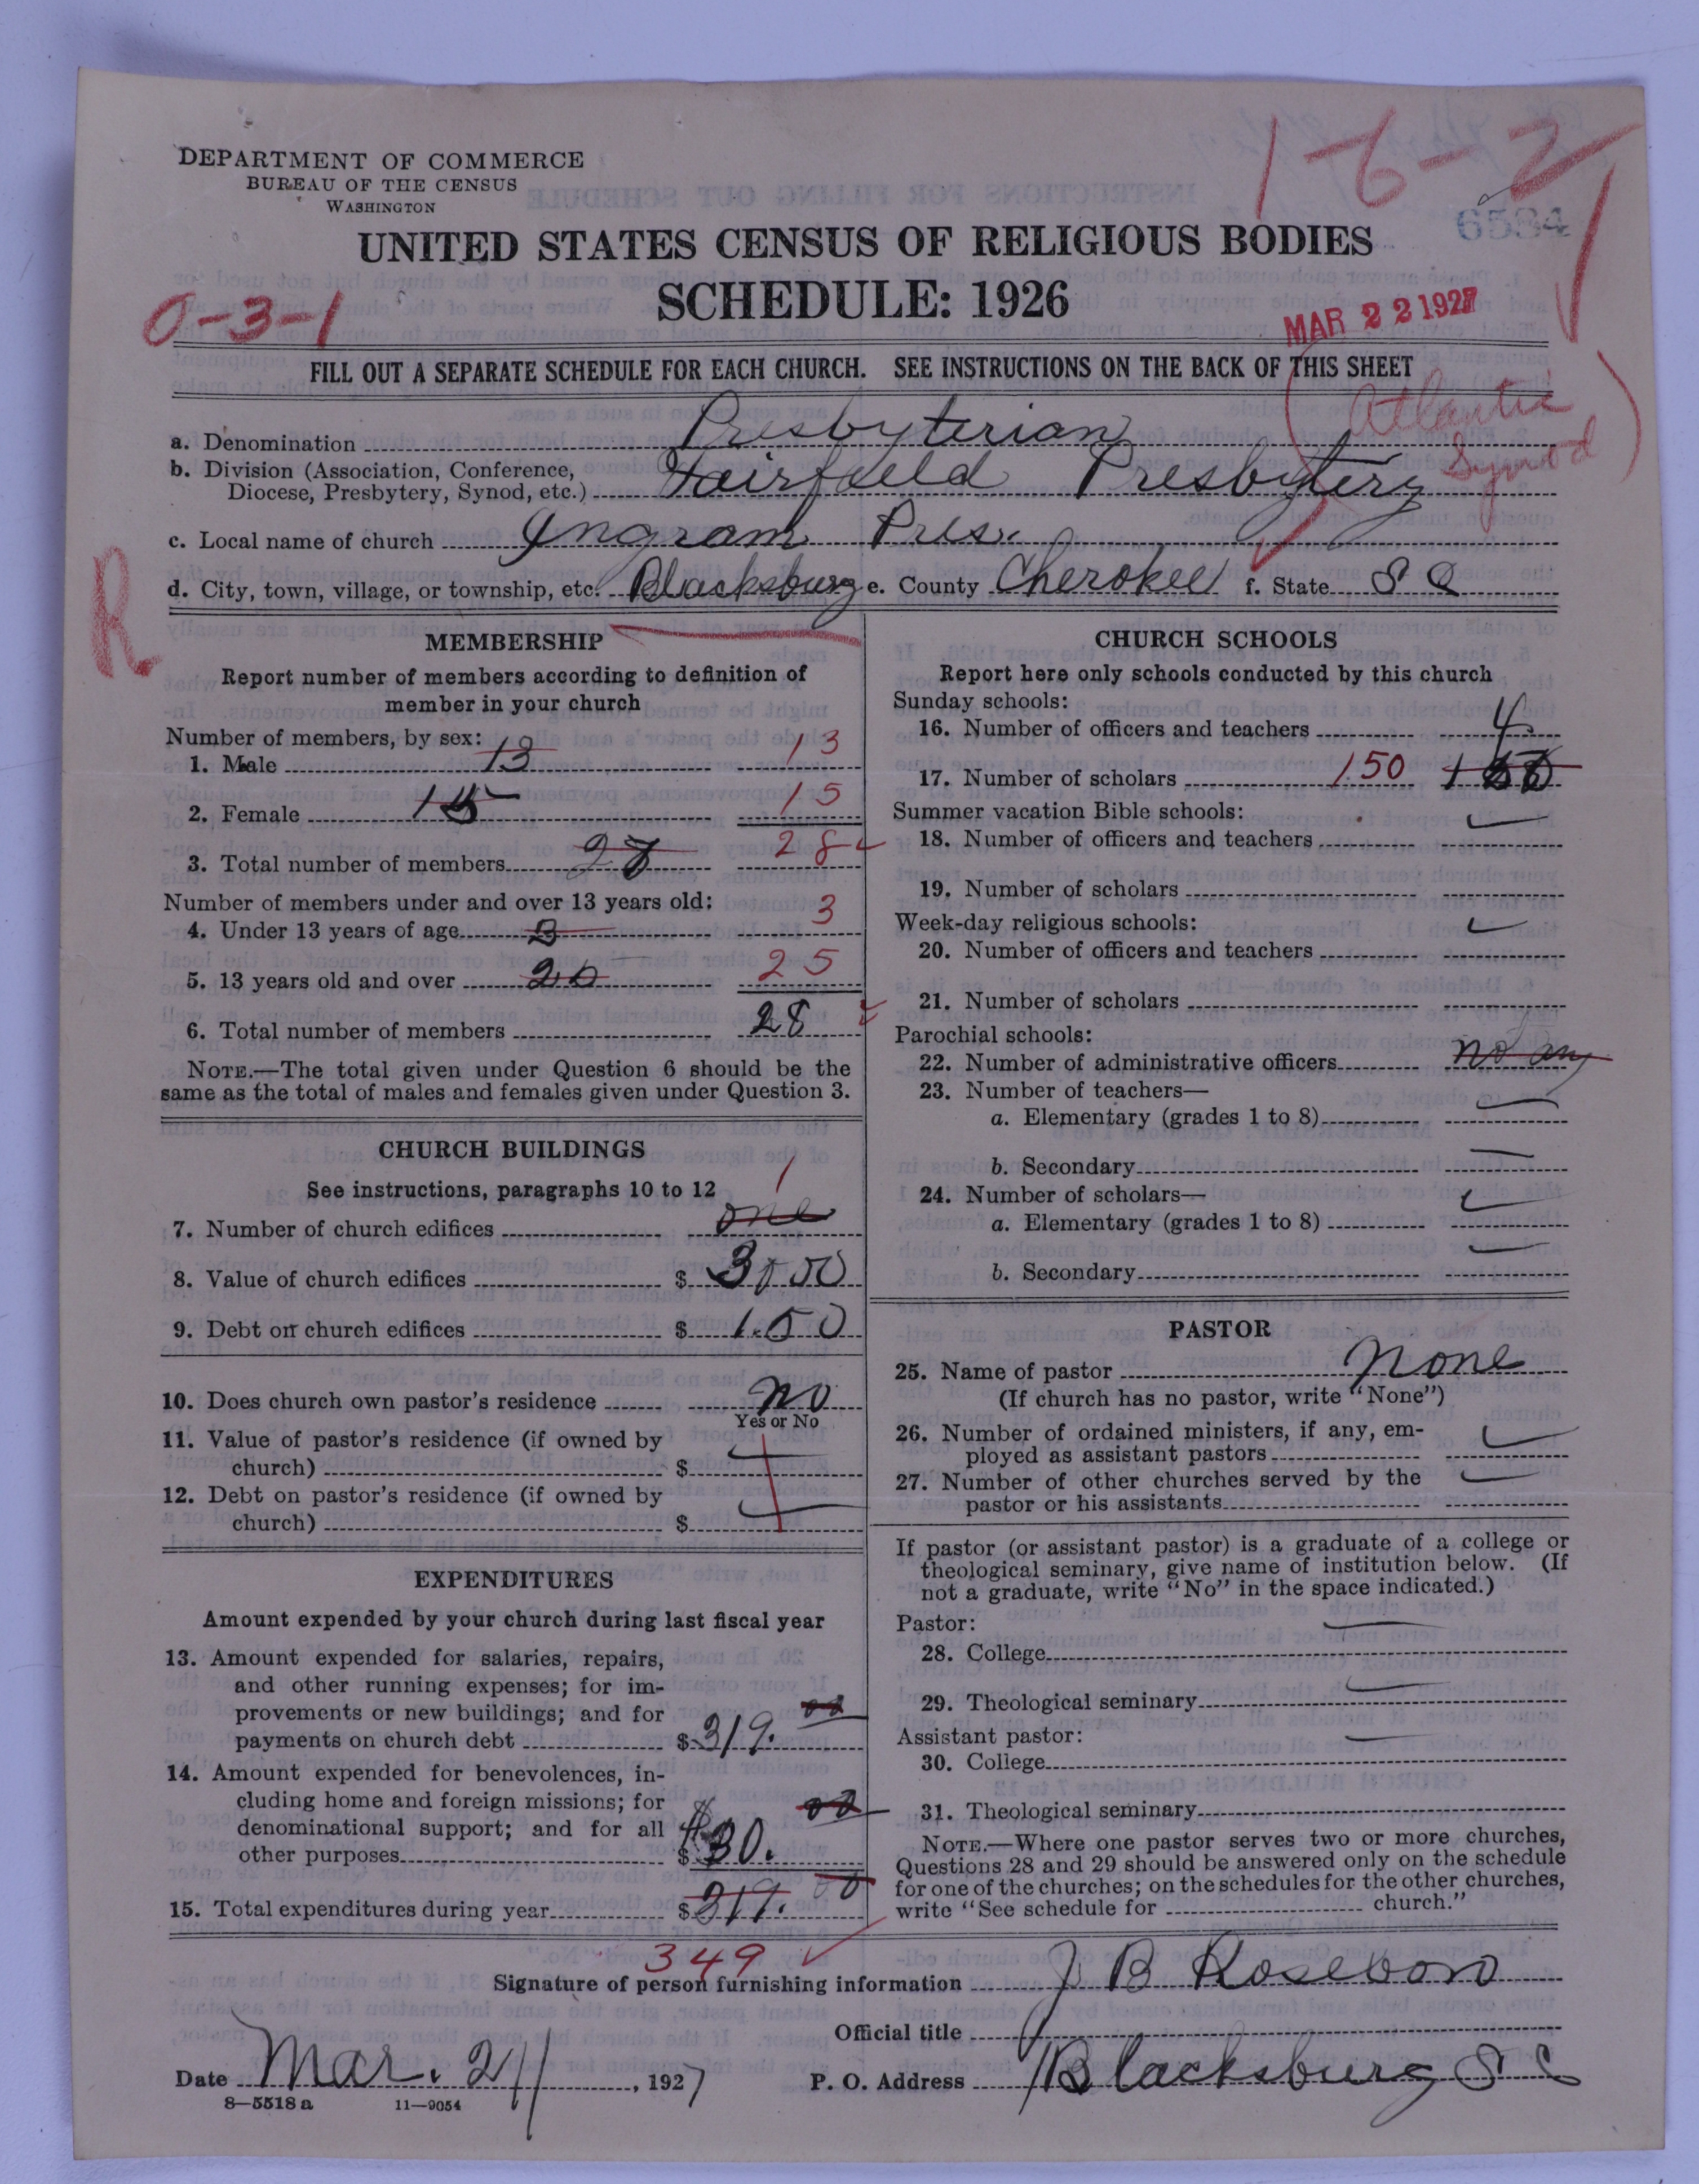 1-6-2
DEPARTMENT OF COMMERCE
BUREAU OF THE CENSUS
WASHINGTON
6584
UNITED STATES CENSUS OF RELIGIOUS BODIES
SCHEDULE: 1926
0-3-1
MAR 22 1927
FILL OUT A SEPARATE SCHEDULE FOR EACH CHURCH. SEE INSTRUCTIONS ON THE BACK OF THIS SHEET
(Atlantic Synod)
a. Denomination Presbyterian
b. Division (Association, Conference, Diocese, Presbytery, Synod, etc.) Fairfield Presbytery
c. Local name of church Ingram Pres.
d. City, town, village, or township, etc. Blacksburg e. County Cherokee f. State S C
R
MEMBERSHIP
Report number of members according to definition of
member in your church
Number of members, by sex:
1. Male 13 13
2. Female 15 15
3. Total number of members 28 28
Number of members under and over 13 years old:
4. Under 13 years of age 3 3
5. 13 years old and over 25
6. Total number of members 28
NOTE.—The total given under Question 6 should be the
same as the total of males and females given under Question 3.
CHURCH BUILDINGS
See instructions, paragraphs 10 to 12
7. Number of church edifices one 1
8. Value of church edifices $ 3000
9. Debt on church edifices $ 150
10. Does church own pastor's residence No
Yes or No
11. Value of pastor's residence (if owned by
church) $
12. Debt on pastor's residence (if owned by
church) $
EXPENDITURES
Amount expended by your church during last fiscal year
13. Amount expended for salaries, repairs,
and other running expenses; for im-
provements or new buildings; and for
payments on church debt $ 319.00
14. Amount expended for benevolences, in-
cluding home and foreign missions; for
denominational support; and for all
other purposes $ $30.00
15. Total expenditures during year $ 319.00
349
CHURCH SCHOOLS
Report here only schools conducted by this church
Sunday schools:
16. Number of officers and teachers 4
17. Number of scholars 150
Summer vacation Bible schools:
18. Number of officers and teachers
19. Number of scholars
Week-day religious schools:
20. Number of officers and teachers
21. Number of scholars
Parochial schools:
22. Number of administrative officers no any
23. Number of teachers—
a. Elementary (grades 1 to 8)
b. Secondary
24. Number of scholars—
a. Elementary (grades 1 to 8)
b. Secondary
PASTOR
25. Name of pastor None
(If church has no pastor, write "None")
26. Number of ordained ministers, if any, em-
ployed as assistant pastors
27. Number of other churches served by the
pastor or his assistants
If pastor (or assistant pastor) is a graduate of a college or
theological seminary, give name of institution below. (If
not a graduate, write "No" in the space indicated.)
Pastor:
28. College
29. Theological seminary
Assistant pastor:
30. College
31. Theological seminary
NOTE.—Where one pastor serves two or more churches,
Questions 28 and 29 should be answered only on the schedule
for one of the churches; on the schedules for the other churches,
write "See schedule for church."
Signature of person furnishing information J B Roseboro
Official title
Date Mar. 21, 1927 P. O. Address Blacksburg S C
8—5518 a 11—9054